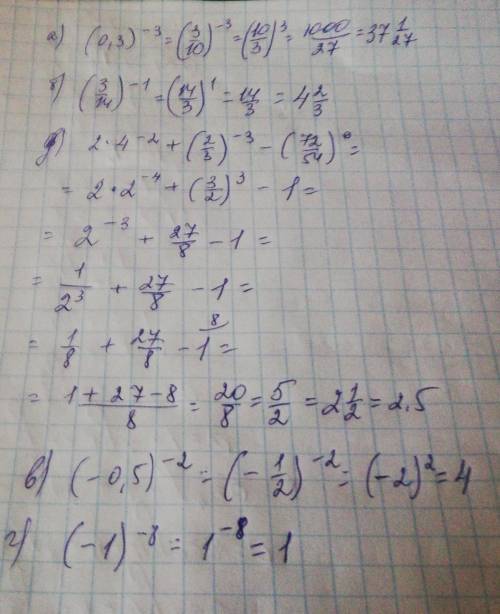 а) (0,3)⁻³ = (3/10)⁻³ = (10/3)³ = 1000/27 = 37 1/27
б) (3/14)⁻¹ = (14/3)¹ = 14/3 = 4 2/3
д) 2·4⁻² + (2/3)⁻³ − (72/54)⁰ =
= 2·2⁻⁴ + (3/2)³ − 1 =
= 2⁻³ + 27/8 − 1 =
= 1/2³ + 27/8 − 1 =
= 1/8 + 27/8 − 1 ⁸ =
= (1 + 27 − 8)/8 = 20/8 = 5/2 = 2 1/2 = 2,5
в) (−0,5)⁻² = (−1/2)⁻² = (−2)² = 4
г) (−1)⁻⁸ = 1⁻⁸ = 1